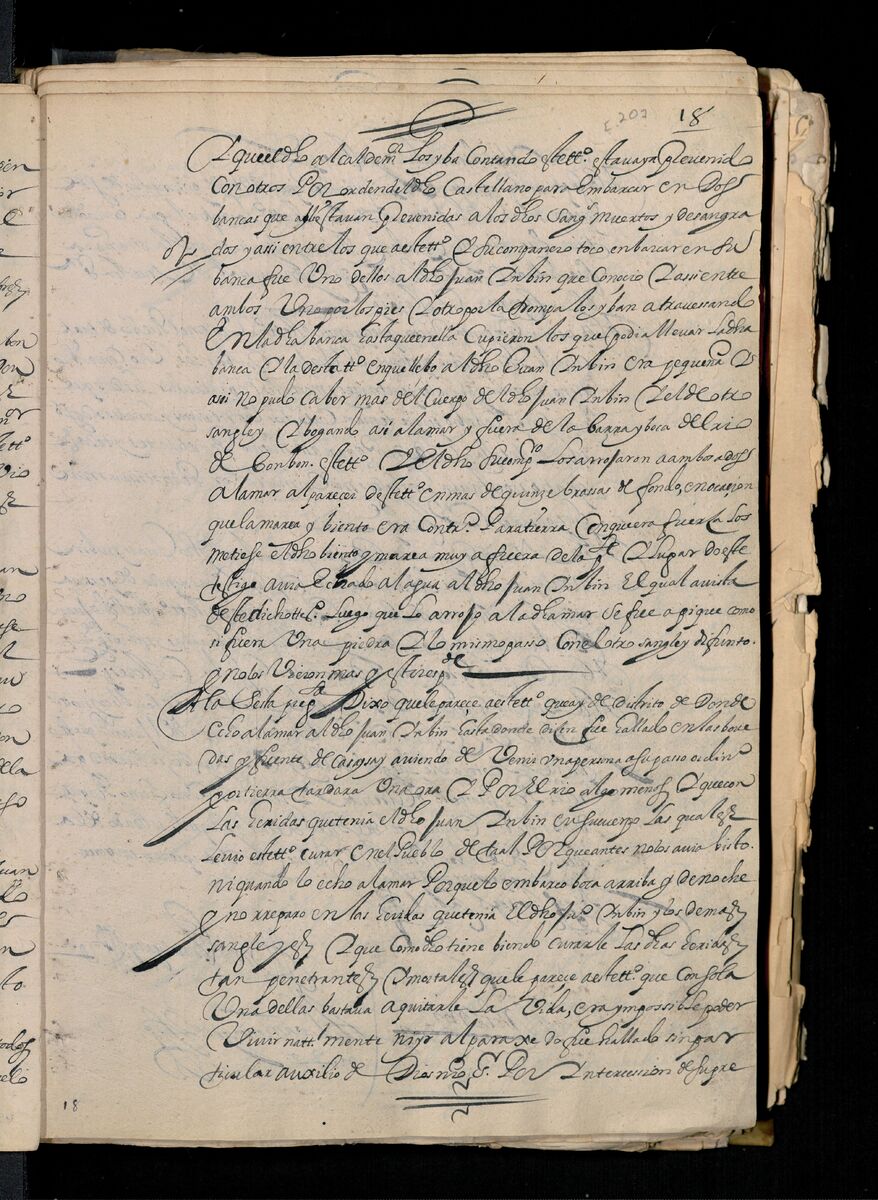 207 18
Y que el dho alcalde mor los yba Contando este tto. estava ya prevenido
Con otros Por orden del dho Castellano para Embarcar en Dos
bancas que alli estavan prevenidas a los dhos Sangs muertos y desangra
dos y assi entre los que a este tto. Y su compañero toco enbarcar en su
banca fue Uno dellos al dho Juan Inbin que Conocio Y assi entre
ambos Uno por los pies Y otro por la trompa los yban atravessando
En la dha banca hasta que en ella Cupieron los que podia llevar La dha
banca Y la deste tto. en que llebo al dho Juan Inbin era pequeña Y
asi no pudo caber mas del Cuerpo del dho Juan Inbin Y el de otro
sangley Y bogando asi a la mar y fuera de la barra y boca del rio
de Bonbon. este tto. Y el dho su compo. Los arrojaron a ambos a dos
a la mar al parecer deste tto. en mas de quinze brassas de fondo, en ocacion
que la marea y biento era Contra. Para tierra Conque era fuerza Los
metiese el dho biento y marea muy a fuera de la pte Y lugar do este
testigo avia Echado al agua al dho Juan Inbin El qual a vista
deste dicho tto. Luego que Lo arrojo a la dha mar Se fue a pique como
si fuera Una piedra Y lo mismo passo Con el otro sangley difunto.
y no los Vieron mas y esto respde
A la Sesta pregta Dixo que le pareçe a este tto. que ay de distrito de Donde
Echo a la mar al dho Juan Inbin hasta donde diçen fue hallado en las bove
das y fuente de Caysasay aviendo de Venir una persona a su passo ordino
por tierra tardara Una ora Y Por El rio algo menos Y que con
Las heridas que tenia el dho Juan Inbin en su cuerpo Las quales
Le vio este tto. curar en el Pueblo de taal Porque antes no los avia bisto
ni quando lo echo a la mar Porque lo embarco boca arriba y de noche
y no rreparo en las heridas que tenia El dho Juo Inbin y los demas
sangleyes Y que como dho tiene biendo curarle Las dhas heridas
tan penetrantes Y mortales que le pareçe a este tto. que con sola
Una dellas bastava a quitarle La Vida, era ympossible poder
Vivir natt.mente ni yr a parar do fue hallado sin par
ticular auxilio de Dios nro Sr. Por Intercession de su pre
18